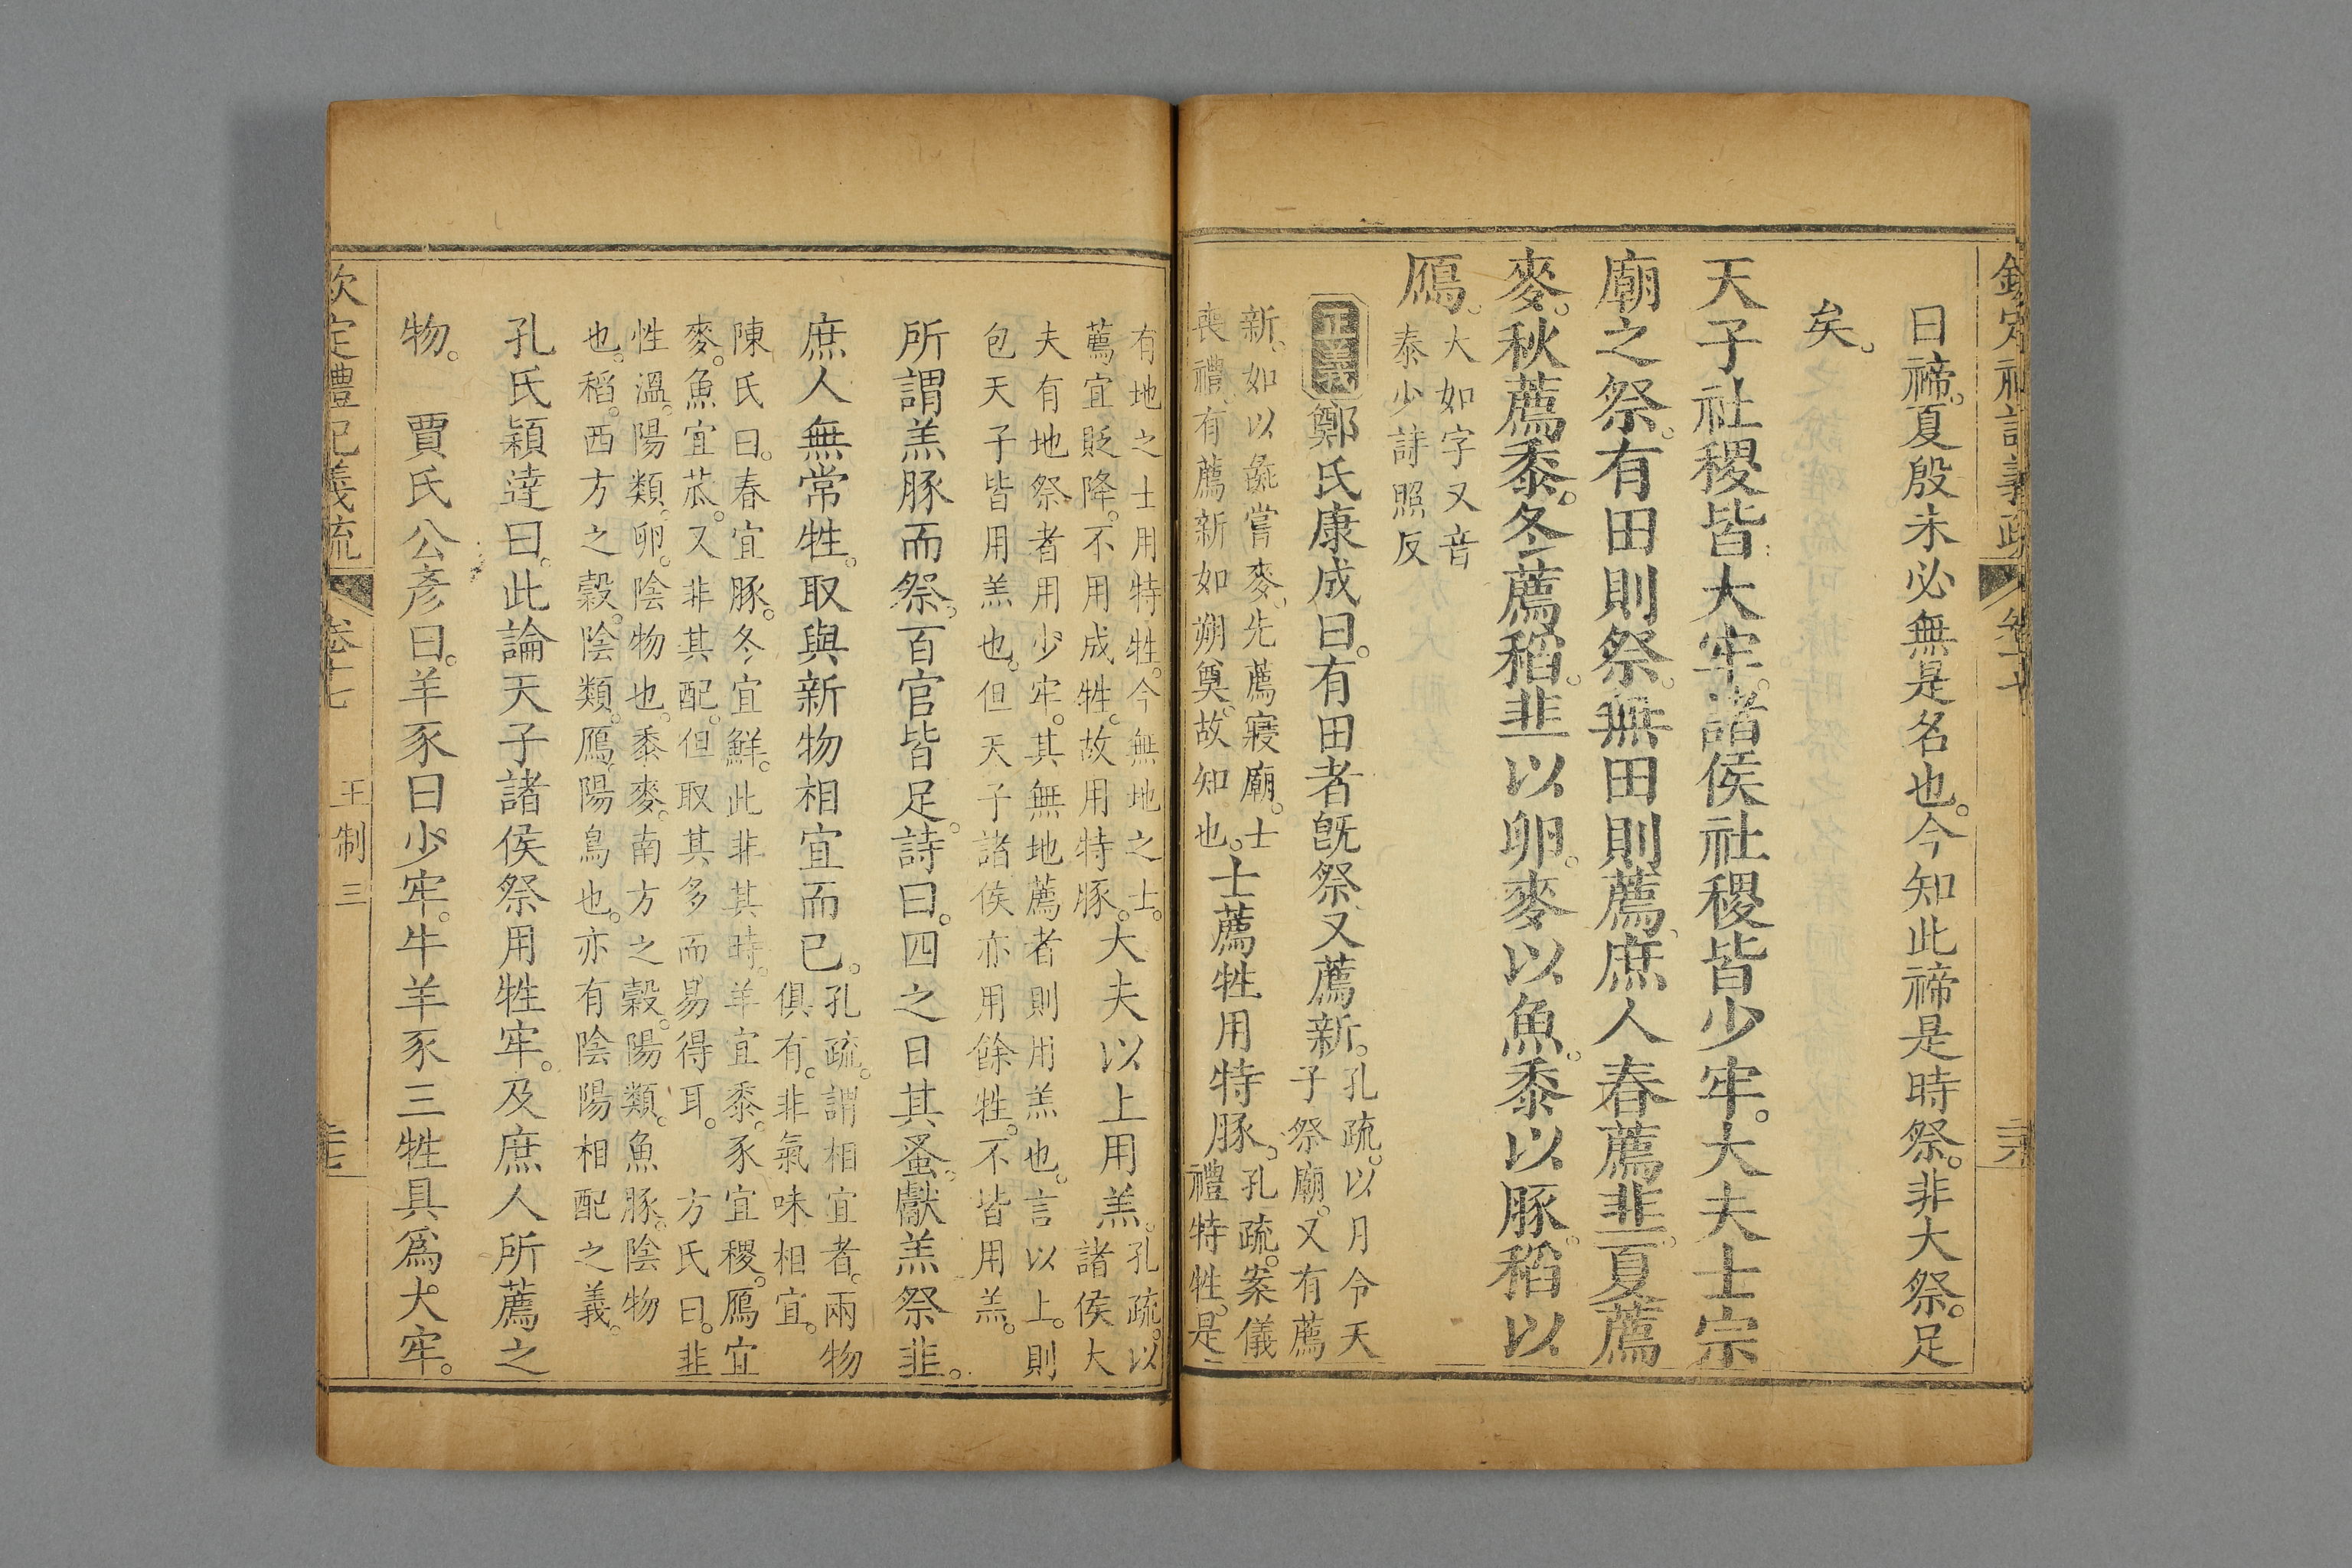 欽定禮記義疏 卷十七
曰禘。夏殷未必無是名也。今知此禘是時祭。非大祭。足
矣。
天子社稷皆大牢。諸侯社稷皆少牢。大夫士宗
廟之祭。有田則祭。無田則薦。庶人春薦韭。夏薦
麥。秋薦黍。冬薦稻。韭以卵。麥以魚。黍以豚。稻以
鴈。
大如字又音
泰少詩照反
正義 鄭氏康成曰。有田者旣祭又薦新。
孔疏。以月令天
子祭廟。又有薦
新。如以彘嘗麥。先薦寢廟。士
喪禮。有薦新如朔奠。故知也。
士薦牲用特豚。
孔疏。案儀
禮特牲。是
有地之士用特牲。今無地之士。
薦宜貶降。不用成牲。故用特豚。
大夫以上用羔。
孔疏。以
諸侯大
夫有地祭者用少牢。其無地薦者則用羔也。言以上。則
包天子皆用羔也。但天子諸侯亦用餘牲。不皆用羔。
所謂羔豚而祭。百官皆足。詩曰。四之日其蚤。獻羔祭韭。
庶人無常牲。取與新物相宜而已。
孔疏。謂相宜者。兩物
俱有。非氣味相宜。
陳氏曰。春宜豚。冬宜鮮。此非其時。羊宜黍。豕宜稷。鴈宜
麥。魚宜苽。又非其配。但取其多而易得耳。 方氏曰。韭
性溫。陽類。卵。陰物也。黍麥。南方之穀。陽類。魚豚。陰物
也。稻。西方之穀。陰類。鴈。陽鳥也。亦有陰陽相配之義。
孔氏穎達曰。此論天子諸侯祭用牲牢。及庶人所薦之
物。 賈氏公彥曰。羊豕曰少牢。牛羊豕三牲具爲大牢。
欽定禮記義疏 卷十七 王制三